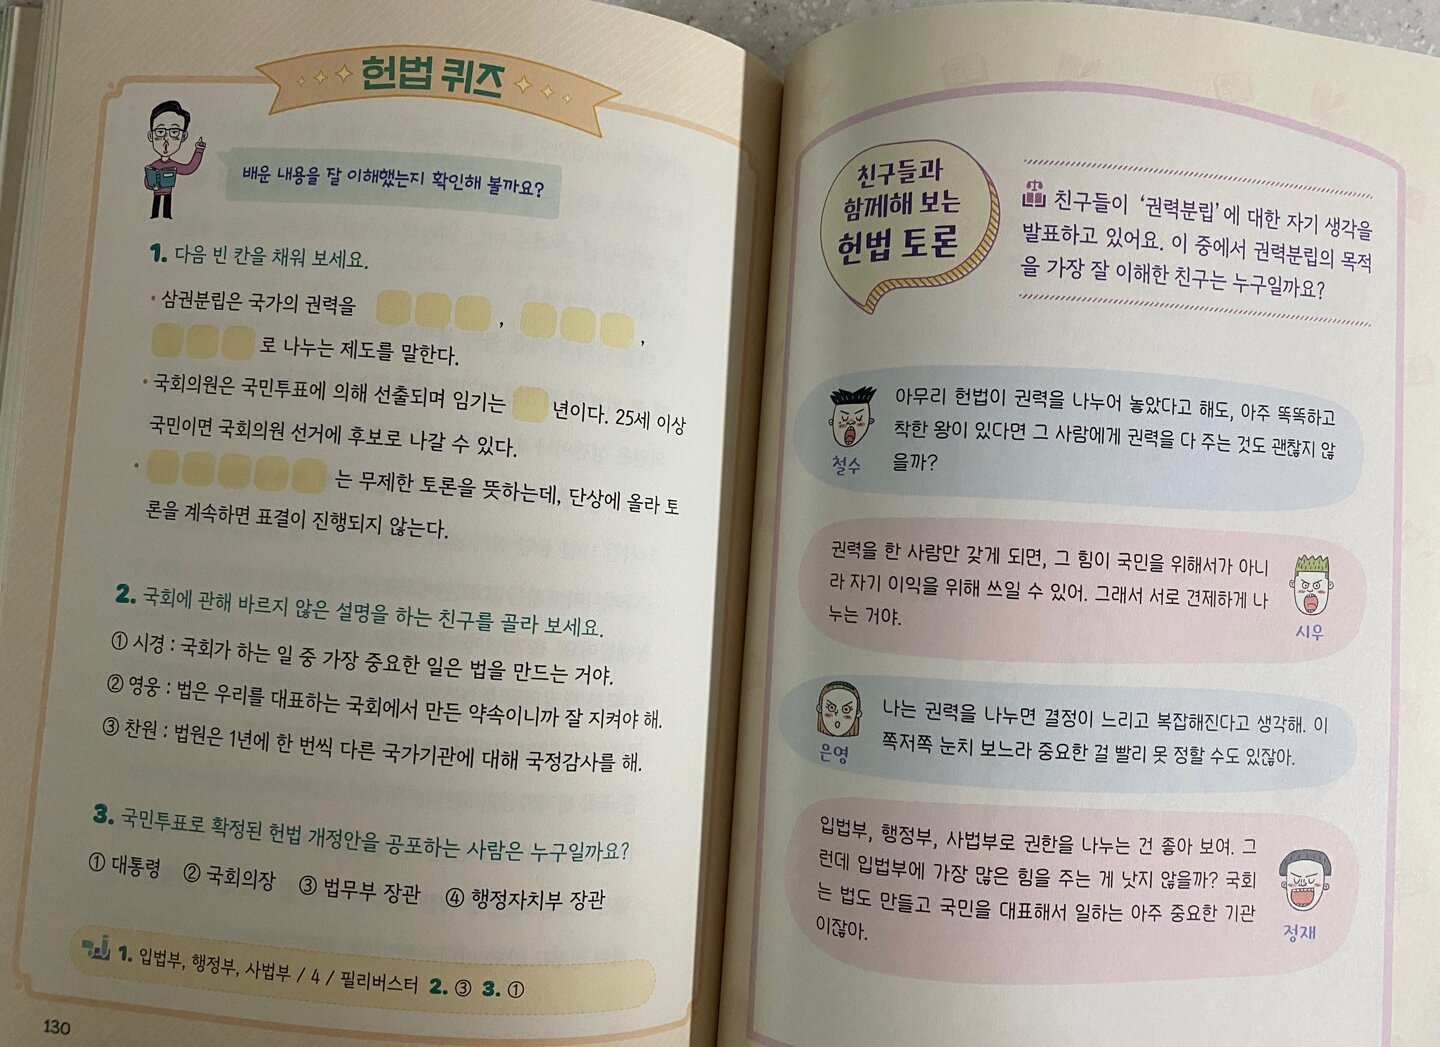 헌법 퀴즈
배운 내용을 잘 이해했는지 확인해 볼까요?
1. 다음 빈 칸을 채워 보세요.
• 삼권분립은 국가의 권력을 , ,
로 나누는 제도를 말한다.
• 국회의원은 국민투표에 의해 선출되며 임기는 년이다. 25세 이상
국민이면 국회의원 선거에 후보로 나갈 수 있다.
• 는 무제한 토론을 뜻하는데, 단상에 올라 토
론을 계속하면 표결이 진행되지 않는다.
2. 국회에 관해 바르지 않은 설명을 하는 친구를 골라 보세요.
① 시경 : 국회가 하는 일 중 가장 중요한 일은 법을 만드는 거야.
② 영웅 : 법은 우리를 대표하는 국회에서 만든 약속이니까 잘 지켜야 해.
③ 찬원 : 법원은 1년에 한 번씩 다른 국가기관에 대해 국정감사를 해.
3. 국민투표로 확정된 헌법 개정안을 공포하는 사람은 누구일까요?
① 대통령 ② 국회의장 ③ 법무부 장관 ④ 행정자치부 장관
1. 입법부, 행정부, 사법부 / 4 / 필리버스터 2. ③ 3. ①
130
친구들과
함께해 보는
헌법 토론
친구들이 ‘권력분립’에 대한 자기 생각을
발표하고 있어요. 이 중에서 권력분립의 목적
을 가장 잘 이해한 친구는 누구일까요?
아무리 헌법이 권력을 나누어 놓았다고 해도, 아주 똑똑하고
착한 왕이 있다면 그 사람에게 권력을 다 주는 것도 괜찮지 않
을까?
철수
권력을 한 사람만 갖게 되면, 그 힘이 국민을 위해서가 아니
라 자기 이익을 위해 쓰일 수 있어. 그래서 서로 견제하게 나
누는 거야.
시우
나는 권력을 나누면 결정이 느리고 복잡해진다고 생각해. 이
쪽저쪽 눈치 보느라 중요한 걸 빨리 못 정할 수도 있잖아.
은영
입법부, 행정부, 사법부로 권한을 나누는 건 좋아 보여. 그
런데 입법부에 가장 많은 힘을 주는 게 낫지 않을까? 국회
는 법도 만들고 국민을 대표해서 일하는 아주 중요한 기관
이잖아.
정재